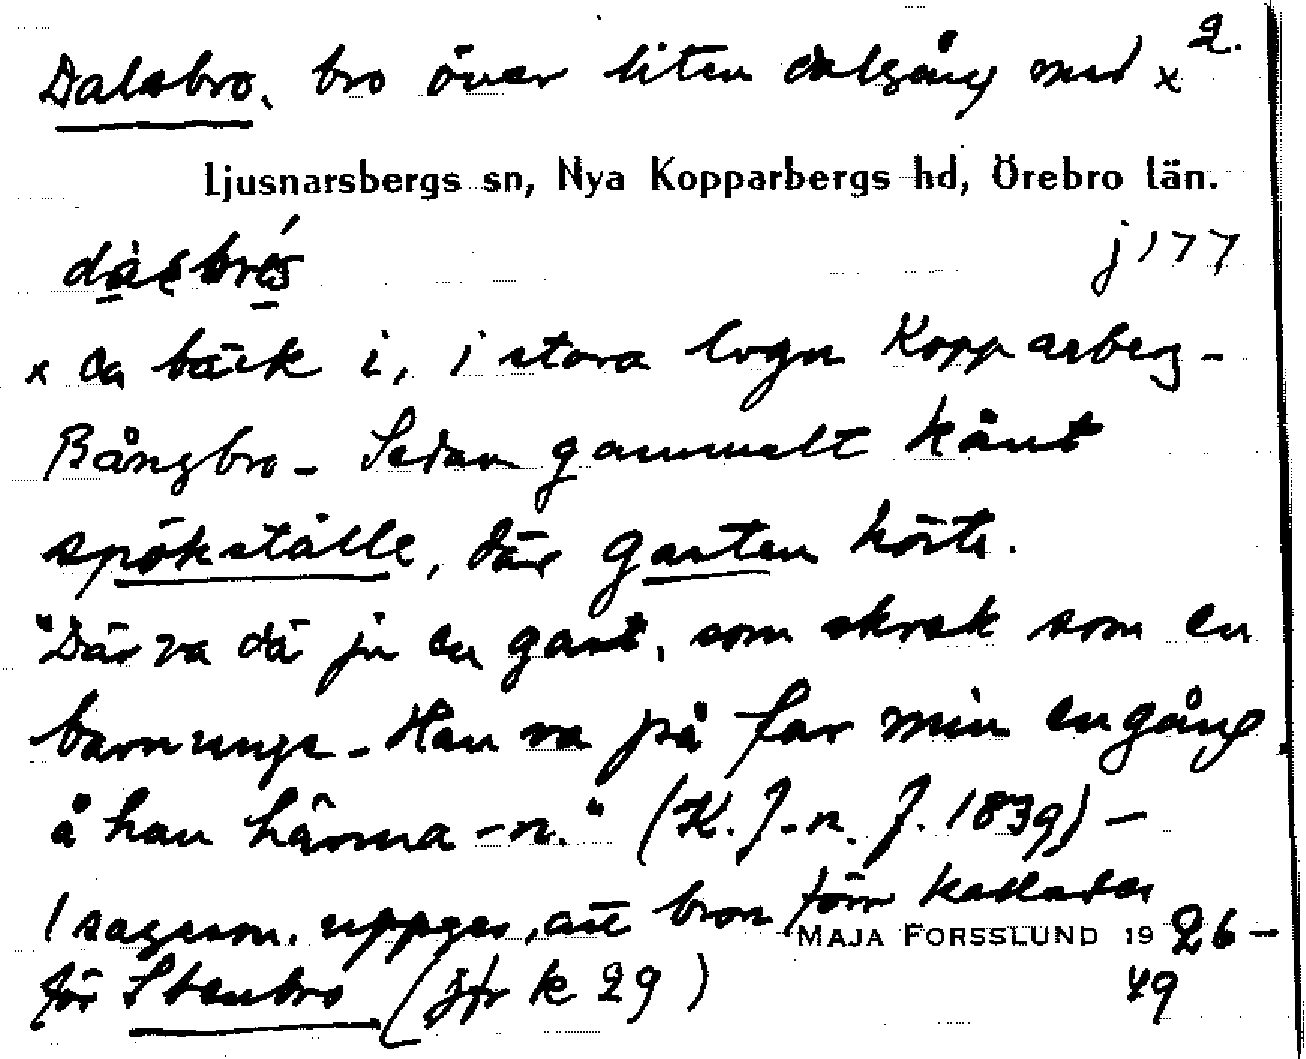 Dalsbro, bro över liten dalgång med x 2.
Ljusnarsbergs sn, Nya Kopparbergs hd, Örebro län.
j 177
x en bäck i, i stora vägen Kopparberg-
Bångbro. Sedan gammalt känt
spökställe, där gasten hörts.
"Där va dä ju en gast, som skrek som en
barnunge. Han va på far min engång
å han härma -n." (K. J-n. f. 1839) –
I sagesm. uppges, att bron förr kallades
MAJA FORSSLUND 1926–
för Stenbro (jfr k 29) 49